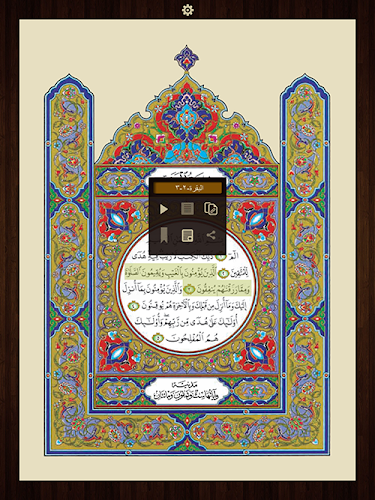 البقرة-٢-٣
الٓمٓ ۝١ ذَٰلِكَ ٱلْكِتَٰبُ لَا رَيْبَ فِيهِ هُدًى
لِّلْمُتَّقِينَ ۝٢ ٱلَّذِينَ يُؤْمِنُونَ بِٱلْغَيْبِ وَيُقِيمُونَ ٱلصَّلَوٰةَ
وَمِمَّا رَزَقْنَٰهُمْ يُنفِقُونَ ۝٣ وَٱلَّذِينَ يُؤْمِنُونَ بِمَآ أُنزِلَ
إِلَيْكَ وَمَآ أُنزِلَ مِن قَبْلِكَ وَبِٱلْءَاخِرَةِ هُمْ يُوقِنُونَ ۝٤
أُو۟لَٰٓئِكَ عَلَىٰ هُدًى مِّن رَّبِّهِمْ وَأُو۟لَٰٓئِكَ
هُمُ ٱلْمُفْلِحُونَ ۝٥
مَدَنِيَّة
وَآيَاتُهَا سِتٌّ وَثَمَانُونَ وَمِائَتَان